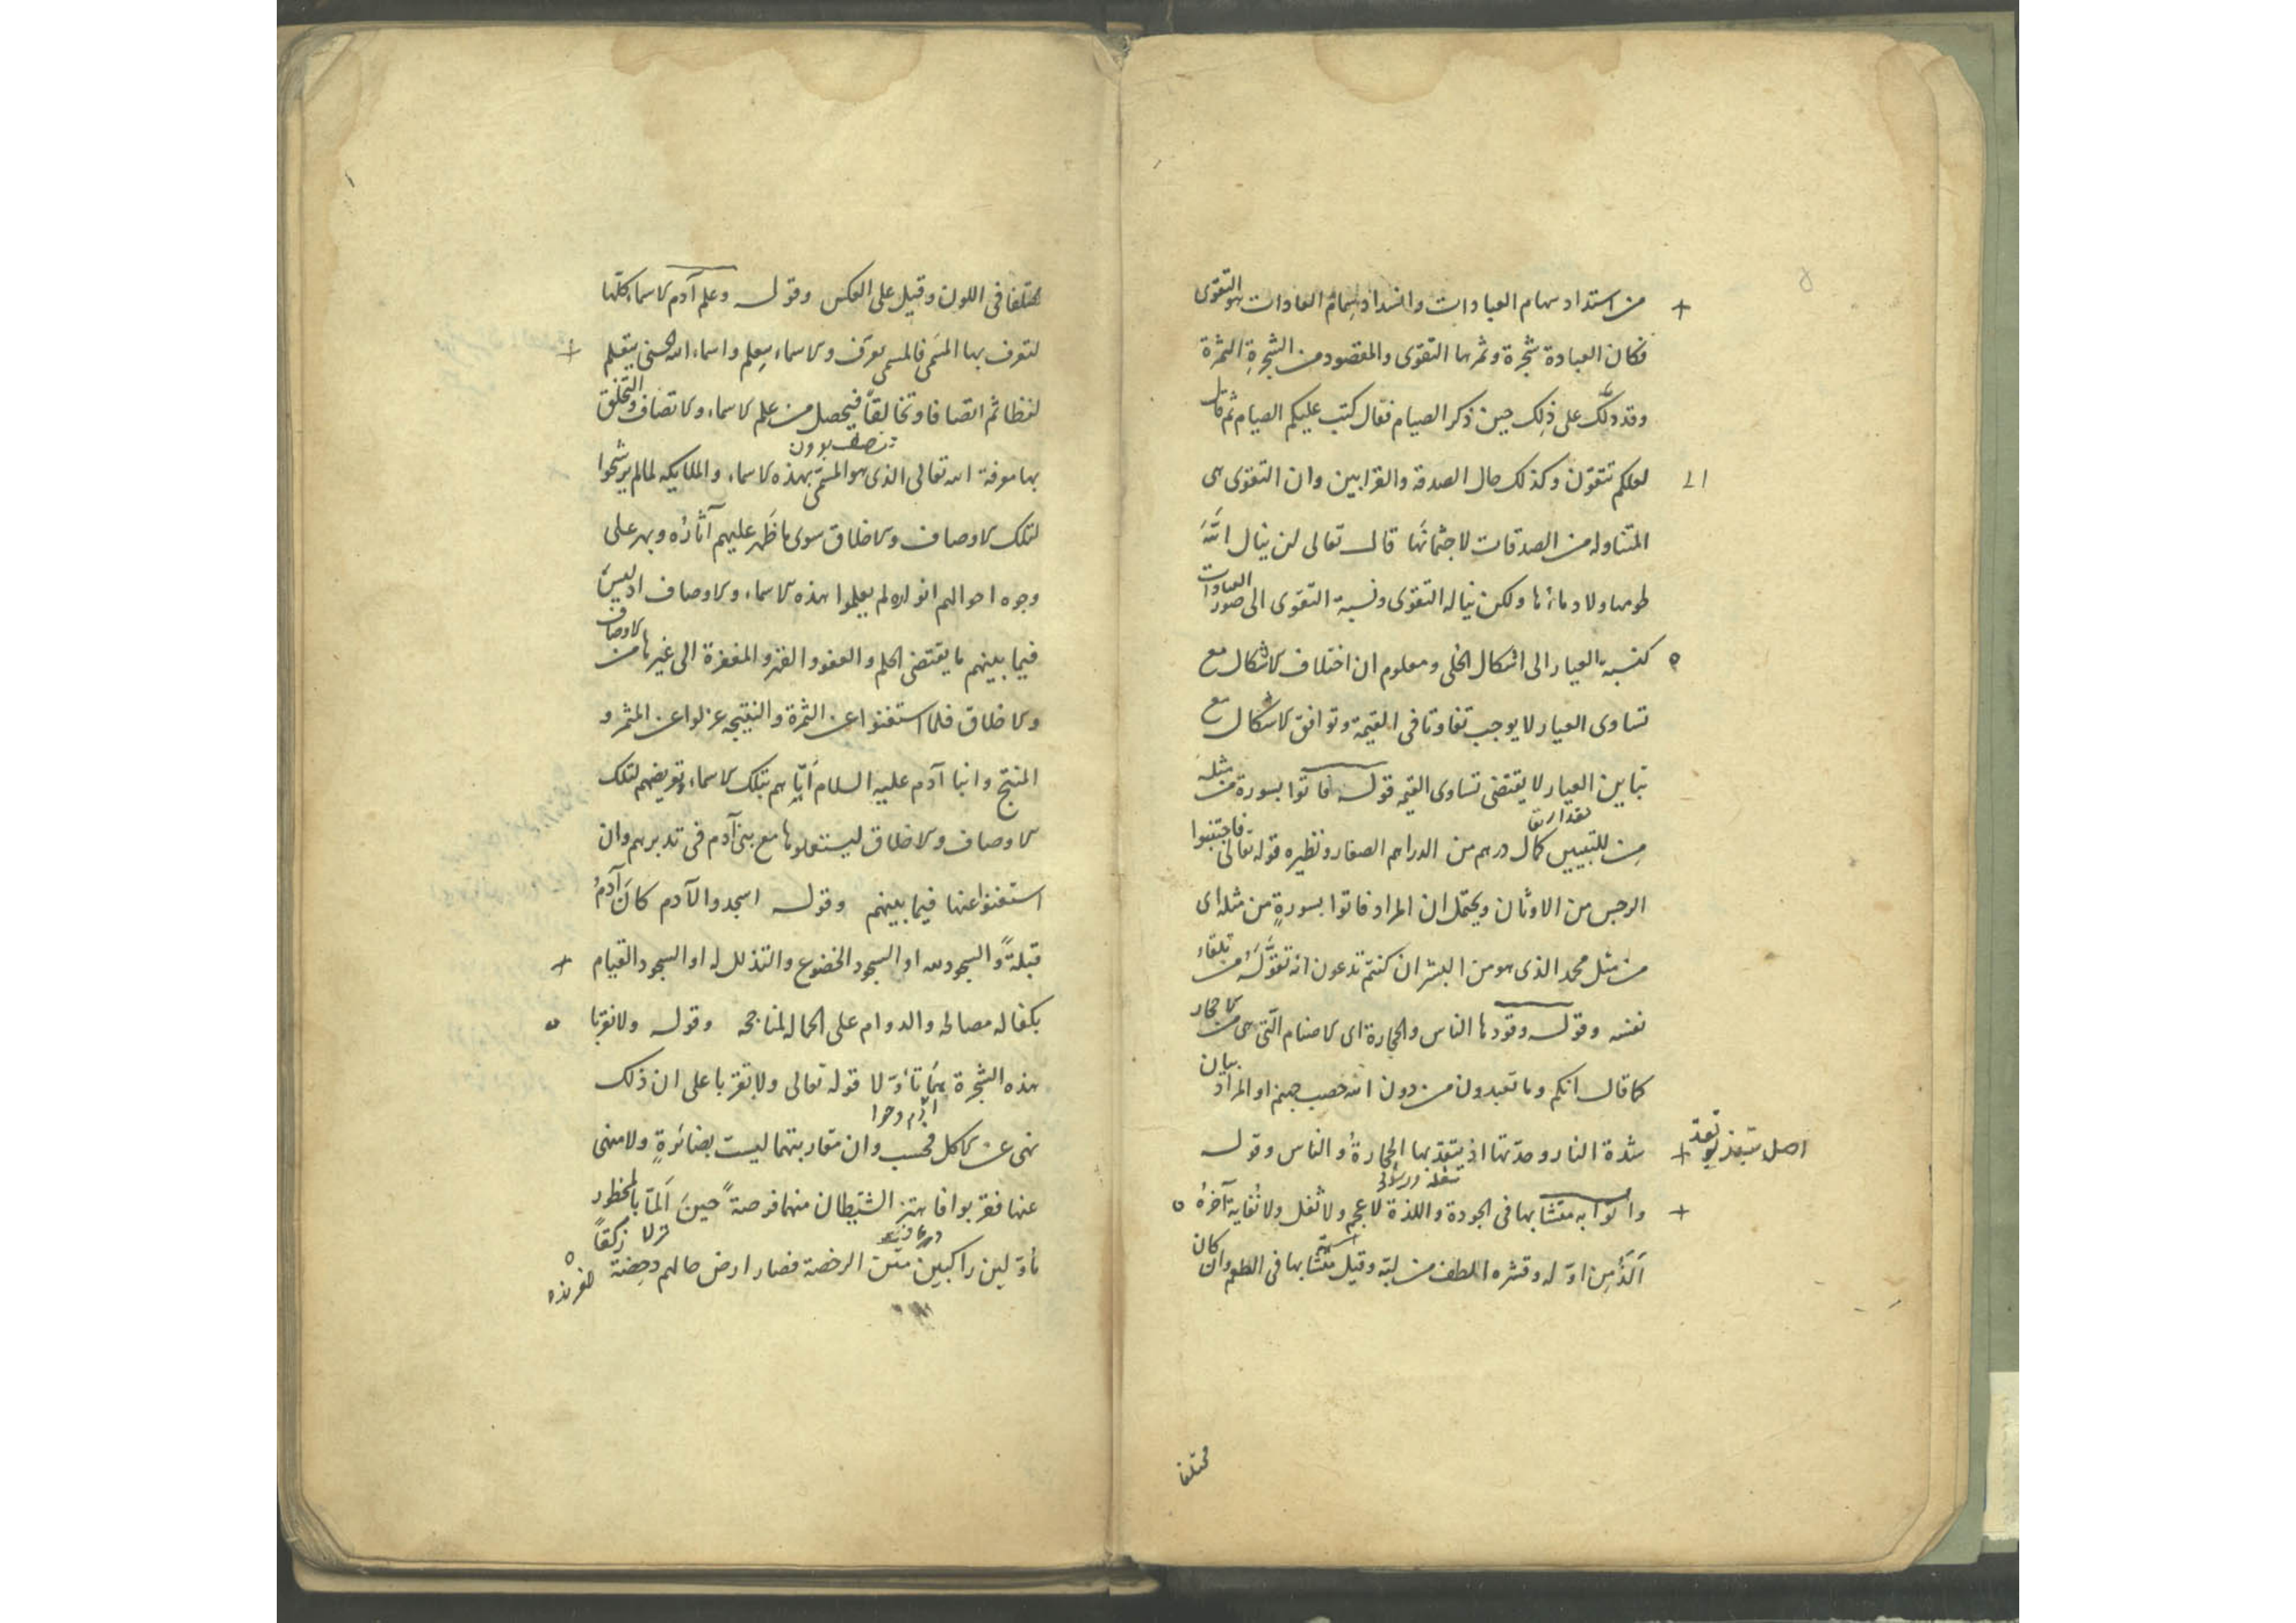 من استداد سهام العبادات وانسداد سمام العادات هو التقوى
فكان العبادة شجرة وثمرها التقوى والمقصود من الشجرة الثمرة
وقد دلّك على ذلك حين ذكر الصيام فقال كتب عليكم الصيام ثم قال
لعلكم تتقون وكذلك حال الصدقة والقرابين وان التقوى هى
المتناوله من الصدقات لا جثمانها قال تعالى لن ينال اللّه
لحومها ولا دماؤها ولكن يناله التقوى ونسبة التقوى الى صور العبادات
كنسبة العيار الى اشكال الحلى ومعلوم ان اختلاف الاشكال مع
تساوى العيار لا يوجب تفاوتا فى القيمة وتوافق الاشكال مع
تباين العيار لا يقتضى تساوى القيمه قوله فاتوا بسورة من مثله
من للتبيين كمال درهم من الدراهم الصغار ونظيره قوله تعالى فاجتنبوا
الرجس من الاوثان ويحتمل ان المراد فاتوا بسورةٍ من مثله اى
من مثل محمد الذى هو من البشر ان كنتم تدعون انه تقوّله من تلقاء
نفسه وقوله وقودها الناس والحجارة اى الاصنام الّتى هى من الاحجار
كما قال انكم وما تعبدون من دون اللّه حصب جهنم او المراد بيان
شدة النار وحدّتها اذ يتقد بها الحجارةُ والناس وقوله
اصل يتقد
واتوا به متشابها فى الجودة واللذة لا عجم ولا ثفل ولا نُفاية آخرهُ
اَلَذُّ من اوّله وقشره الطف من لبّه وقيل متشابها فى الطعم وان كان
مختلفا
مختلفا فى اللون وقيل على العكس وقوله وعلم آدم الاسماء كلّها
لتعرف بها المسَمّى فالمسمى يعرَف والاسماء يعلم واسماء اللّه الحسنى يتعلم
لفظا ثم اتصافا وتخالقاً فيحصل من علم الاسماء والاتصاف والتخلق
بها معرفة اللّه تعالى الذى هو المسمّى بهذه الاسماء والملايكه لما لم يرشحوا
لتلك الاوصاف والاخلاق سوى ما ظَهر عليهم آثارُه وبهر على
وجوه احوالهم انواره لم يعلموا هذه الاسماء والاوصاف اذ ليسَ
فيما بينهم ما يقتضى الحلم والعفو والغفر والمغفرة الى غيرها من الاوصاف
والاخلاق فلما استغنوا عن الثمرة والنتيجه عزلوا عن المثمر و
المنتج وانبأ آدم عليه السلام اَيّاهم بتلك الاسماء وتعريضهم لتلك
الاوصاف والاخلاق ليستعملوها مع بنى آدم فى تدبيرهم وان
استغنوا عنها فيما بينهم وقوله اسجدوا لآدم كانَ آدمُ
قبلةً والسجود للّه او السجود الخضوع والتذلل له او السجود القيام
بكفالة مصالحه والدوام على اكماله لمناجحه وقوله ولا تقربا
هذه الشجرة هما تأوّلا قوله تعالى ولا تقربا على ان ذلك
آدم وحوا
نهى عن الاكل فحسب وان مقاربتهما ليست بضائرةٍ ولا منهى
عنها فقربوا فانتهز الشيطان منها فرصةً حينَ اَلمّا بالمحظور
مأوّلين راكبين متن الرخصة فصار ارض حالهم دحِضة زلقاً
لغزنده